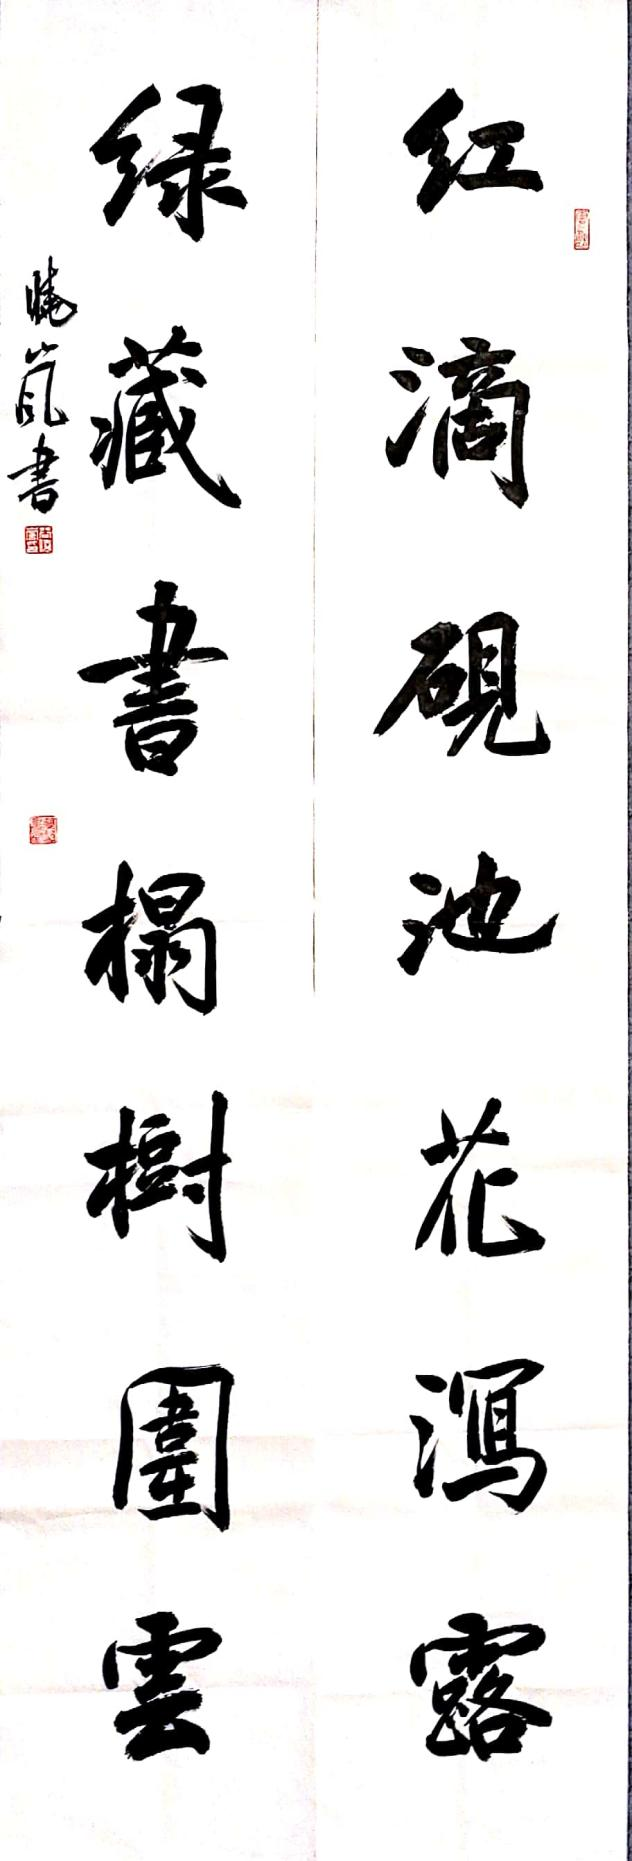 红滴砚池花泻露
绿藏書榻樹圍雲
晓嵐書